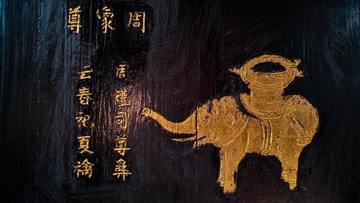 周象尊
周禮司尊彝
云春祀夏禴